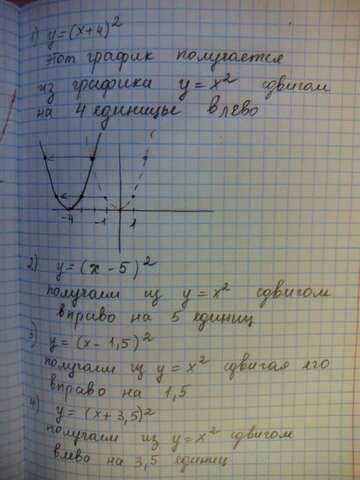 1) y=(x+4)²
этот график получается
из графика y=x² сдвигом
на 4 единицы влево
-4 -1 1
2) y=(x-5)²
получаем из y=x² сдвигом
вправо на 5 единиц
3) y=(x-1,5)²
получаем из y=x² сдвигая его
вправо на 1,5
4) y=(x+3,5)²
получаем из y=x² сдвигом
влево на 3,5 единиц